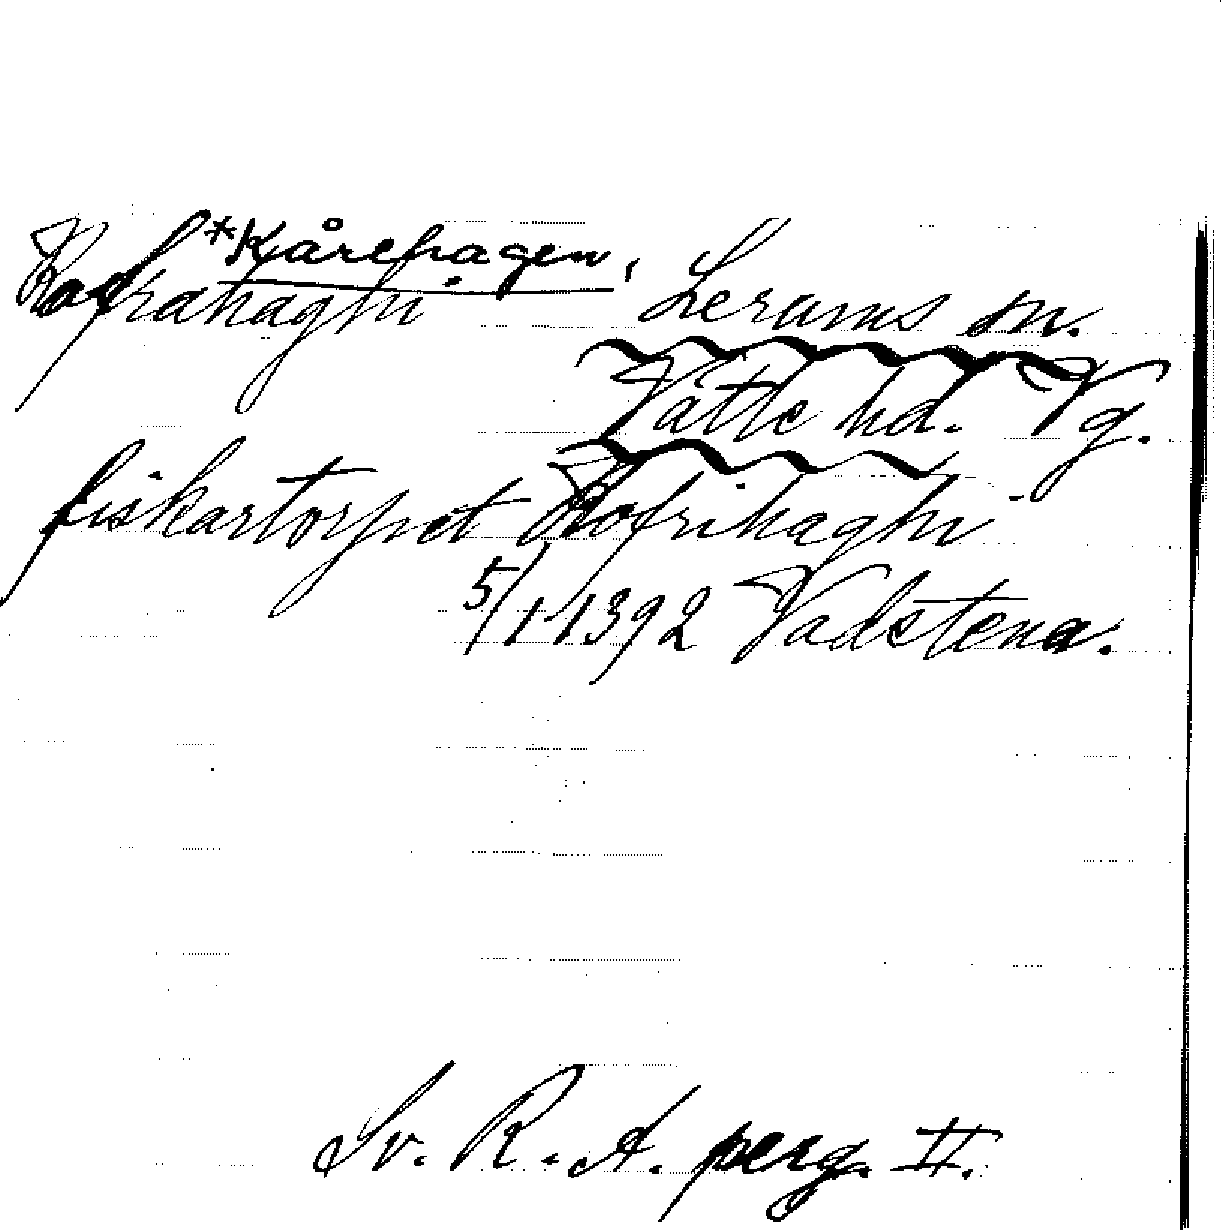 *Kårehagen,
Kafrahaghi Lerums sn.
Vätte hd. Vg.
fiskartorpet Kofrihaghi
5/1 1392 Vadstena.
Sv. R. A. perg. II.